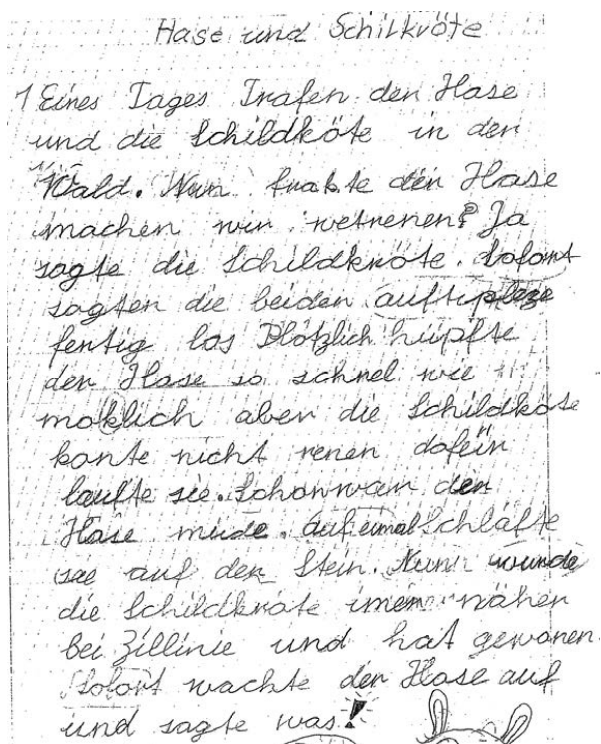 Hase und Schilkröte
1 Eines Tages Trafen der Hase
und die Schildköte in der
Wald. Nun frakte der Hase
machen wir wetrenen? Ja
sagte die Schildkröte. Sofort
sagten die beiden auf
fertig los Plötzlich hüpfte
der Hase so schnel wie
moklich aber die Schildkote
konte nicht renen dafür
laufte sie. Schon war der
Hase müde. auf eimal Schlafte
sie auf der Stein. Nun wurde
die Schildkröte imer näher
bei Zillinie und hat gewonen.
Sofort wachte der Hase auf
und sagte was!